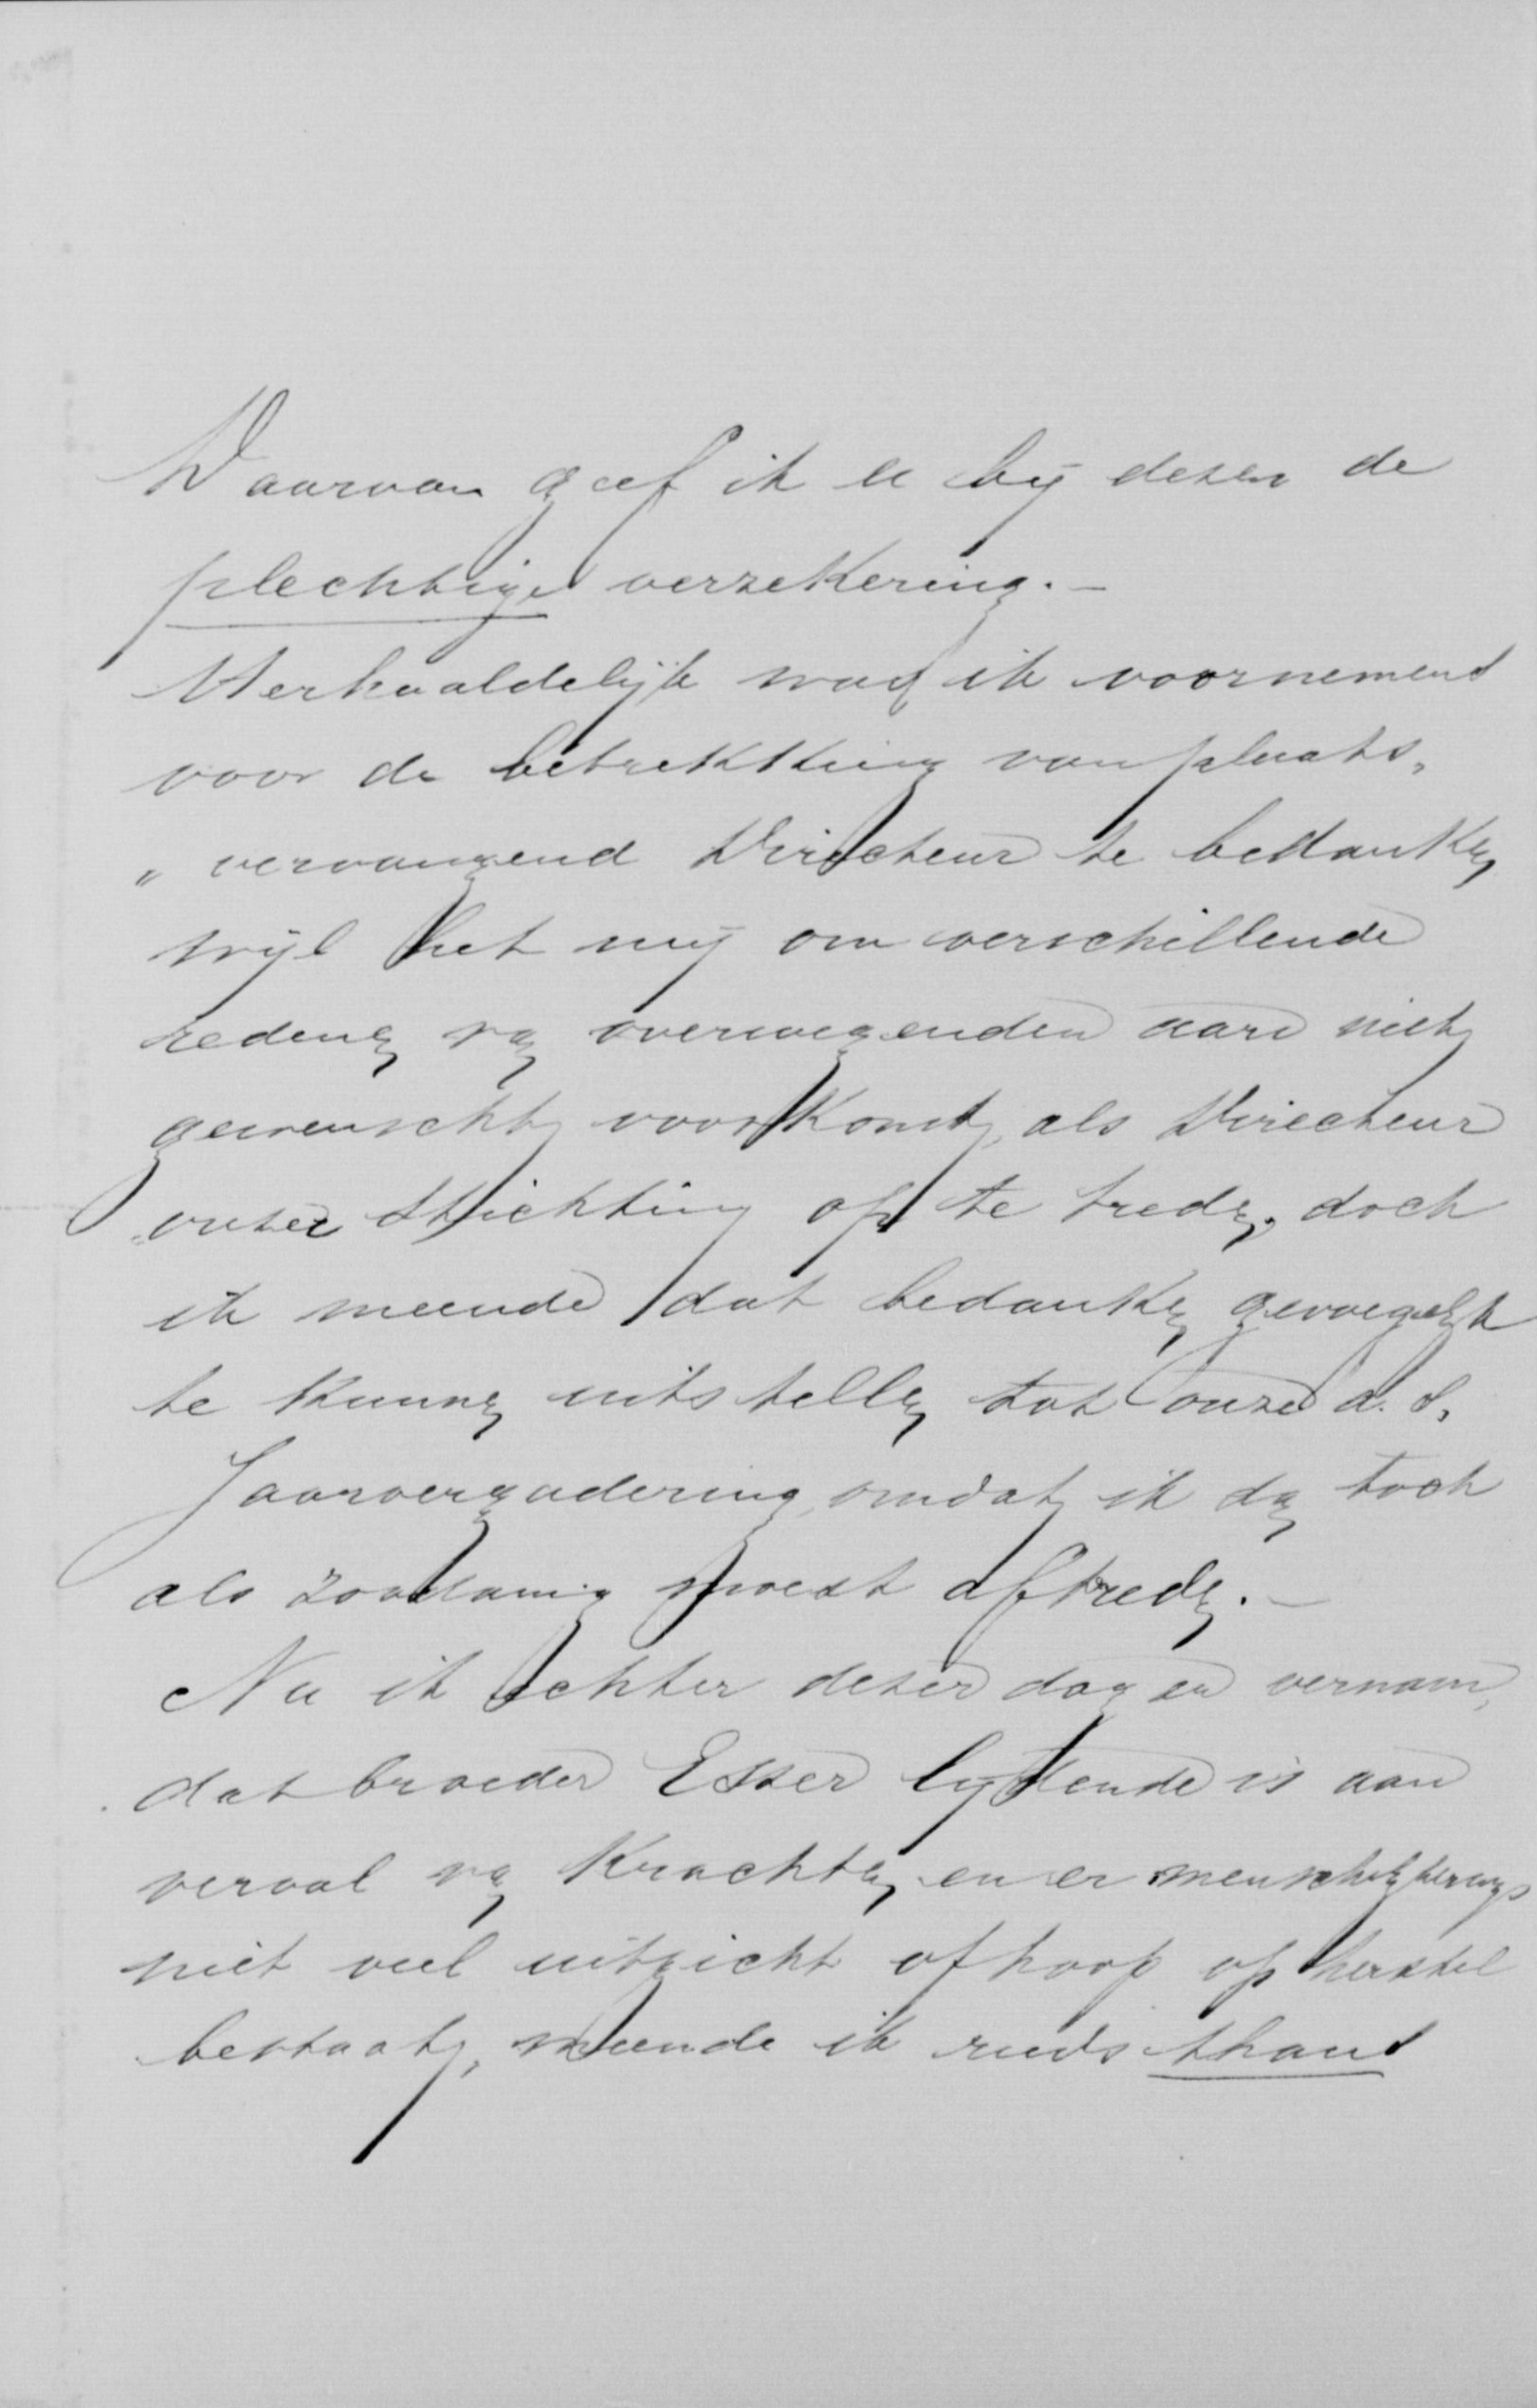 Daarvan geef ik u bij dezen de
plechtige verzekering. –
Herhaaldelijk was ik voornemens
voor de betrekking van plaats„
„vervangend Directeur te bedanken
wijl het mij om verschillende
redenen van overwegenden aard niet
gewenscht voorkomt, als Directeur
onzer Stichting op te treden, doch
ik meende dat bedanken gevoegelijk
te kunnen uitstellen tot onze a. s.
Jaarvergadering, omdat ik dan toch
als zoodanig moest aftreden. –
Nu ik echter dezer dagen vernam,
dat broeder Esser lijdende is aan
verval van Krachten en er menschelijkerwijs
niet veel uitzicht of hoop op herstel
bestaat, meende ik reeds thans